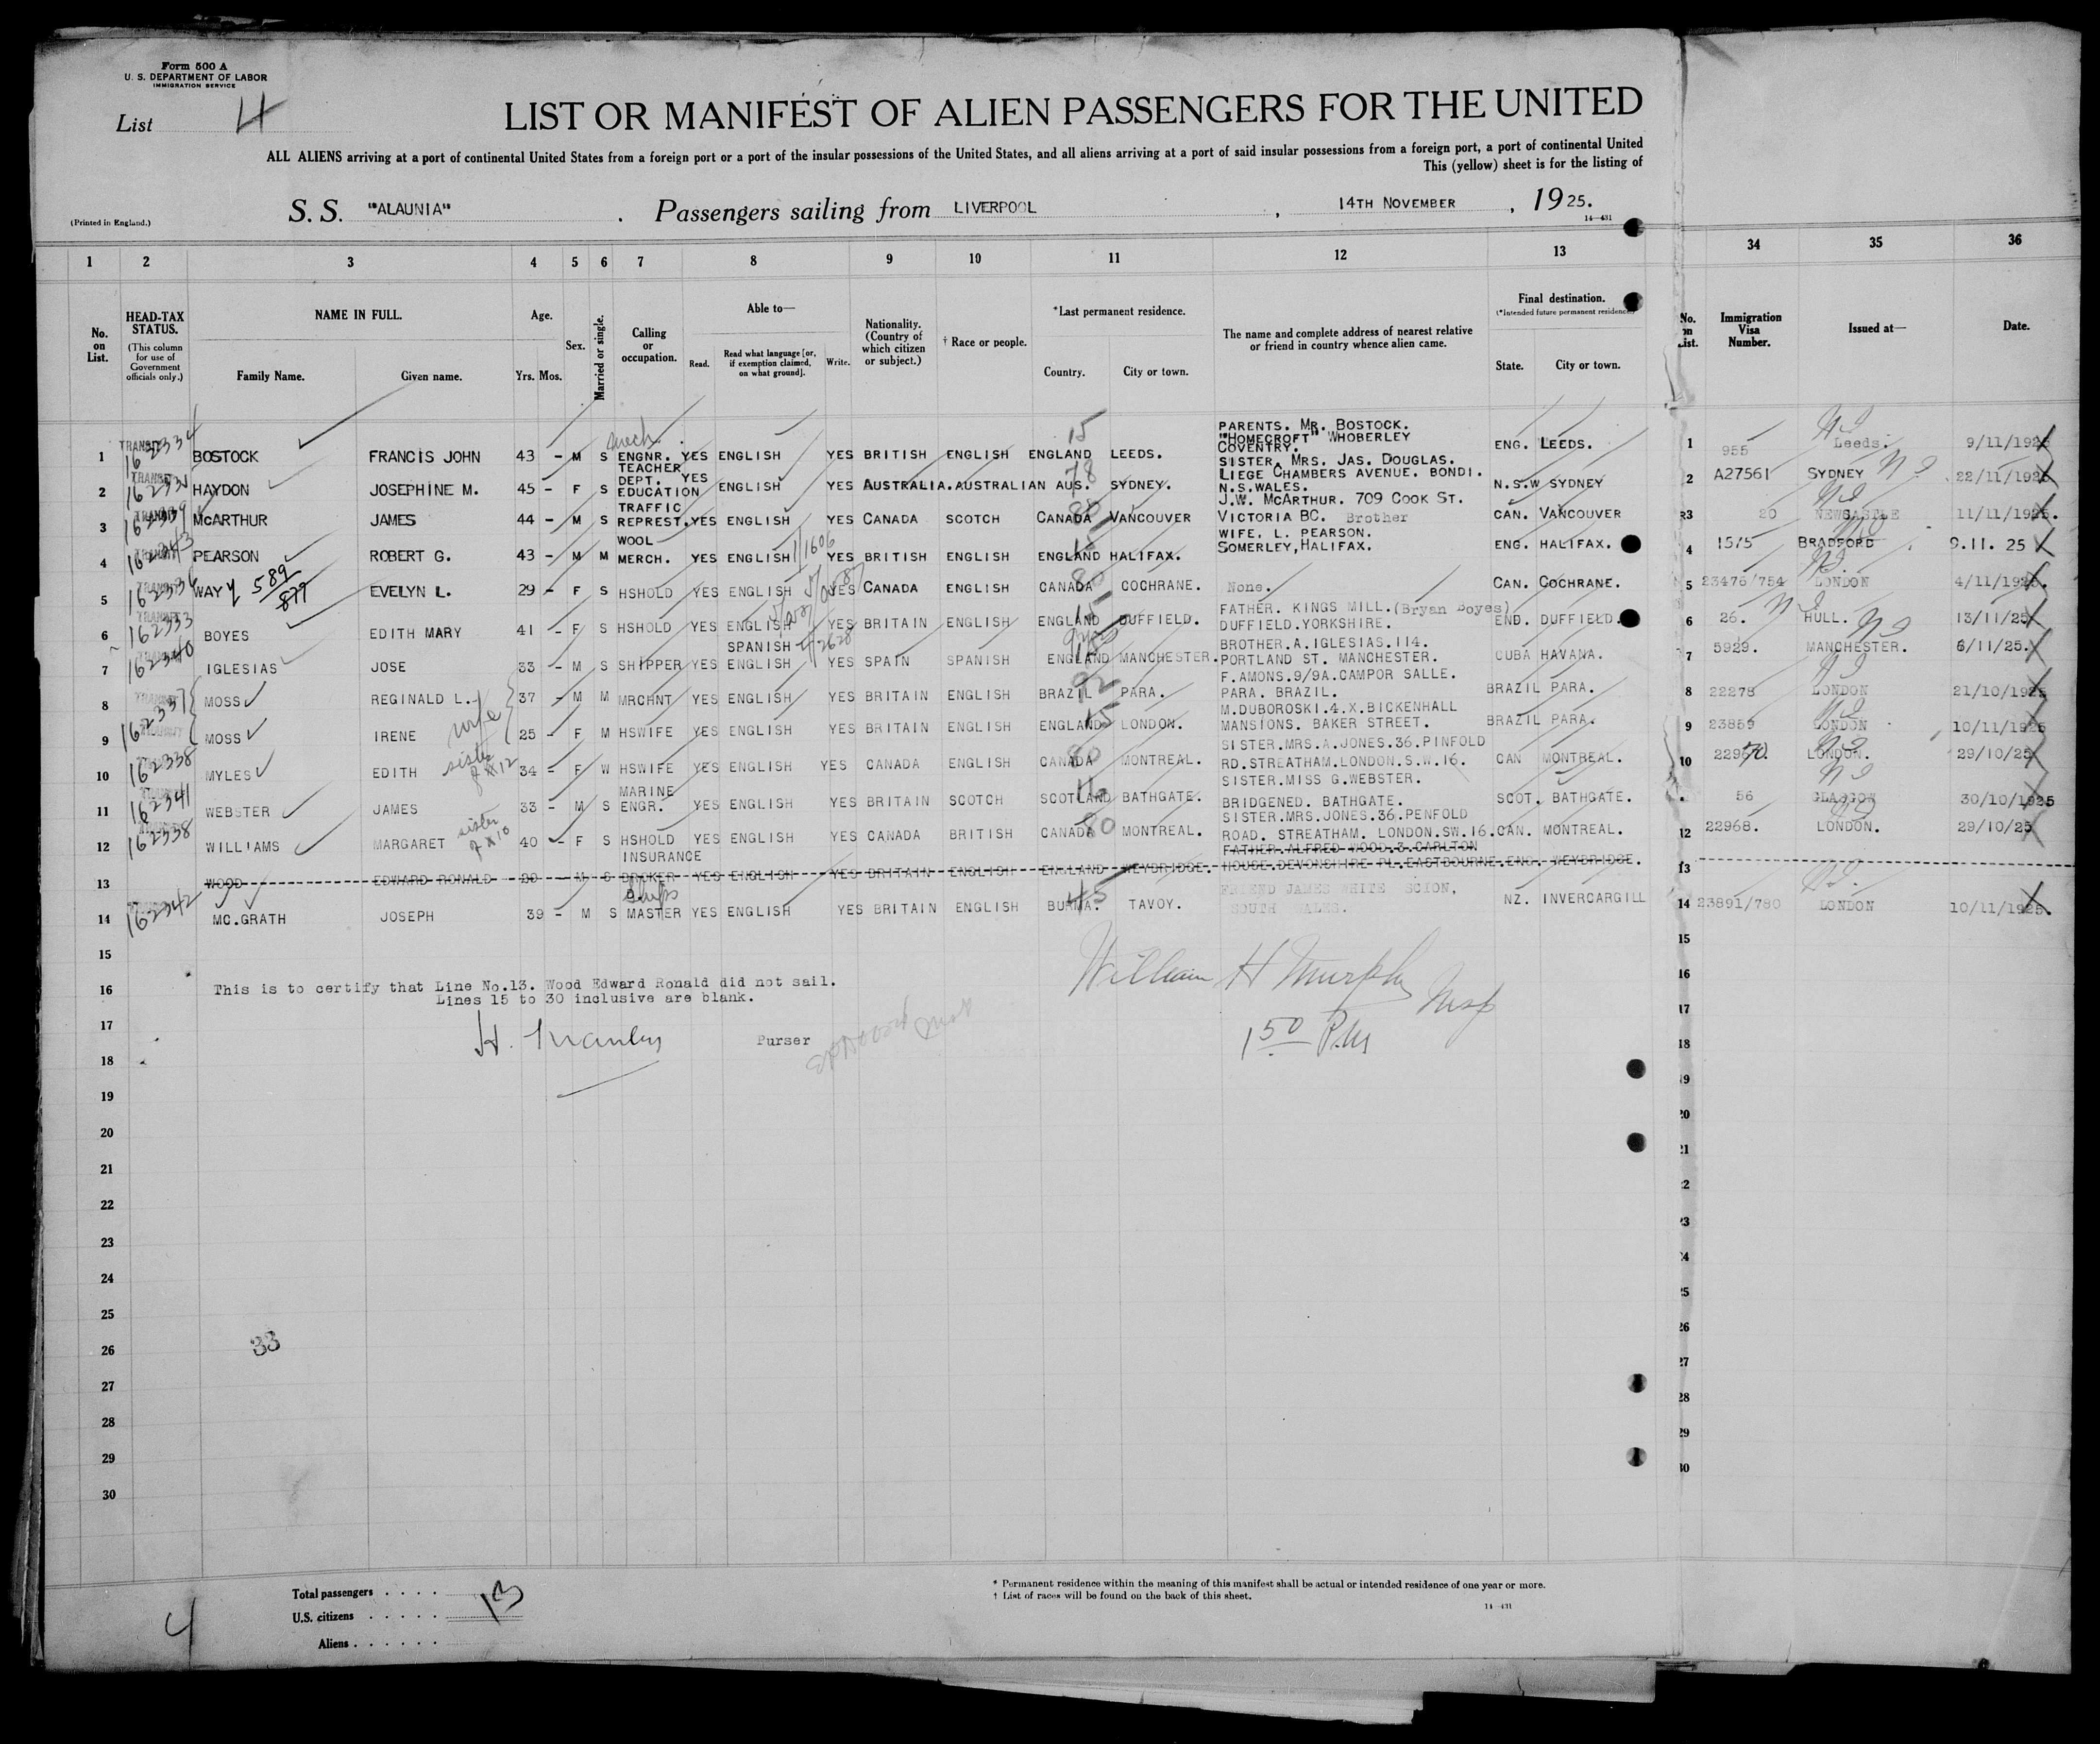 Form 500 A
U. S. DEPARTMENT OF LABOR
IMMIGRATION SERVICE
List 4
LIST OR MANIFEST OF ALIEN PASSENGERS FOR THE UNITED
ALL ALIENS arriving at a port of continental United States from a foreign port or a port of the insular possessions of the United States, and all aliens arriving at a port of said insular possessions from a foreign port, a port of continental United
This (yellow) sheet is for the listing of
(Printed in England.)
S. S. "ALAUNIA" . Passengers sailing from LIVERPOOL , 14TH NOVEMBER , 1925.
14—431
1 2 3 4 5 6 7 8 9 10 11 12 13 34 35 36
No. on List.
HEAD-TAX STATUS.
(This column for use of Government officials only.)
NAME IN FULL.
Family Name. Given name.
Age.
Yrs. Mos.
Sex.
Married or single.
Calling or occupation.
Able to—
Read. Read what language [or, if exemption claimed, on what ground]. Write.
Nationality. (Country of which citizen or subject.)
† Race or people.
*Last permanent residence.
Country. City or town.
The name and complete address of nearest relative or friend in country whence alien came.
Final destination.
(*Intended future permanent residence.)
State. City or town.
Immigration Visa Number.
Issued at—
Date.
1 TRANSIT 162334 BOSTOCK FRANCIS JOHN 43 - M S mech. ENGNR. YES ENGLISH YES BRITISH ENGLISH ENGLAND 15 LEEDS. PARENTS. MR. BOSTOCK. "HOMECROFT" WHOBERLEY COVENTRY. ENG. LEEDS. 1 955 Leeds. 9/11/1925
2 TRANSIT HAYDON JOSEPHINE M. 45 - F S TEACHER DEPT. EDUCATION YES ENGLISH YES AUSTRALIA. AUSTRALIAN AUS. 78 SYDNEY. SISTER, MRS. JAS. DOUGLAS. LIEGE CHAMBERS AVENUE. BONDI. N.S.WALES. N.S.W SYDNEY 2 A27561 SYDNEY 22/11/1925
3 TRANSIT 162339 MCARTHUR JAMES 44 - M S TRAFFIC REPREST. YES ENGLISH YES CANADA SCOTCH CANADA 80 VANCOUVER J.W. MCARTHUR. 709 COOK ST. VICTORIA BC. Brother CAN. VANCOUVER 3 20 NEWCASTLE 11/11/1925.
4 TRANSIT 162343 PEARSON ROBERT G. 43 - M M WOOL MERCH. YES ENGLISH YES BRITISH ENGLISH ENGLAND 15 HALIFAX. WIFE. L. PEARSON. SOMERLEY, HALIFAX. ENG. HALIFAX. 4 1575 BRADFORD 9.11. 25
5 TRANSIT 162336 WAY 589/877 EVELYN L. 29 - F S HSHOLD YES ENGLISH YES CANADA ENGLISH CANADA 80 COCHRANE. None. CAN. COCHRANE. 5 23476/754 LONDON 4/11/1925.
6 TRANSIT 162333 BOYES EDITH MARY 41 - F S HSHOLD YES ENGLISH YES BRITAIN ENGLISH ENGLAND 15 DUFFIELD. FATHER. KINGS MILL. (Bryan Boyes) DUFFIELD.YORKSHIRE. END. DUFFIELD. 6 26. HULL. 13/11/25
7 TRANSIT 162340 IGLESIAS JOSE 33 - M S SHIPPER YES SPANISH ENGLISH YES SPAIN SPANISH ENGLAND MANCHESTER. BROTHER.A.IGLESIAS.114. PORTLAND ST. MANCHESTER. CUBA HAVANA. 7 5929. MANCHESTER. 6/11/25.
8 TRANSIT 162337 MOSS REGINALD L. 37 - M M MRCHNT YES ENGLISH YES BRITAIN ENGLISH BRAZIL 92 PARA. F.AMONS.9/9A.CAMPOR SALLE. PARA. BRAZIL. BRAZIL PARA. 8 22278 LONDON 21/10/1925
9 TRANSIT MOSS IRENE wife 25 - F M HSWIFE YES ENGLISH YES BRITAIN ENGLISH ENGLAND 15 LONDON. M.DUBOROSKI.4.X.BICKENHALL MANSIONS. BAKER STREET. BRAZIL PARA. 9 23859 LONDON 10/11/1925
10 162338 MYLES EDITH sister of #12 34 - F W HSWIFE YES ENGLISH YES CANADA ENGLISH CANADA 80 MONTREAL. SISTER.MRS.A.JONES.36.PINFOLD RD.STREATHAM.LONDON.S.W.16. CAN MONTREAL. 10 22970. LONDON. 29/10/25
11 162341 WEBSTER JAMES 33 - M S MARINE ENGR. YES ENGLISH YES BRITAIN SCOTCH SCOTLAND 16 BATHGATE. SISTER.MISS G.WEBSTER. BRIDGENED. BATHGATE. SCOT. BATHGATE. 56 GLASGOW 30/10/1925
12 162338 WILLIAMS MARGARET sister of #10 40 - F S HSHOLD YES ENGLISH YES CANADA BRITISH CANADA 80 MONTREAL. SISTER.MRS.JONES.36.PENFOLD ROAD. STREATHAM. LONDON.SW.16. CAN. MONTREAL. 12 22968. LONDON. 29/10/25
13 WOOD EDWARD RONALD 29 - M S INSURANCE BROKER YES ENGLISH YES BRITAIN ENGLISH ENGLAND WEYBRIDGE. FATHER.ALFRED WOOD.3.CARLTON HOUSE.DEVONSHIRE PL.EASTBOURNE. ENG. WEYBRIDGE. 13
14 162342 MC.GRATH JOSEPH 39 - M S Ships MASTER YES ENGLISH YES BRITAIN ENGLISH BURMA. 45 TAVOY. FRIEND JAMES WHITE SCION, SOUTH WALES. NZ. INVERCARGILL 14 23891/780 LONDON 10/11/1925.
15
16 This is to certify that Line No.13. Wood Edward Ronald did not sail.
Lines 15 to 30 inclusive are blank.
William H Murphy Insp
17 Purser
1 50 P.M.
18
19
20
21
22
23
24
25
26 33
27
28
29
30
Total passengers . . . . 13
U.S. citizens . . . . .
Aliens . . . . . .
4
* Permanent residence within the meaning of this manifest shall be actual or intended residence of one year or more.
† List of races will be found on the back of this sheet.
14—431